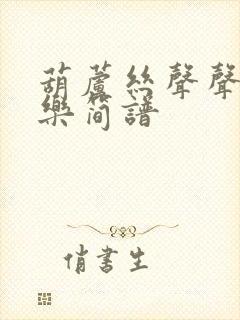 葫蘆絲聲聲
樂簡譜
俏書生